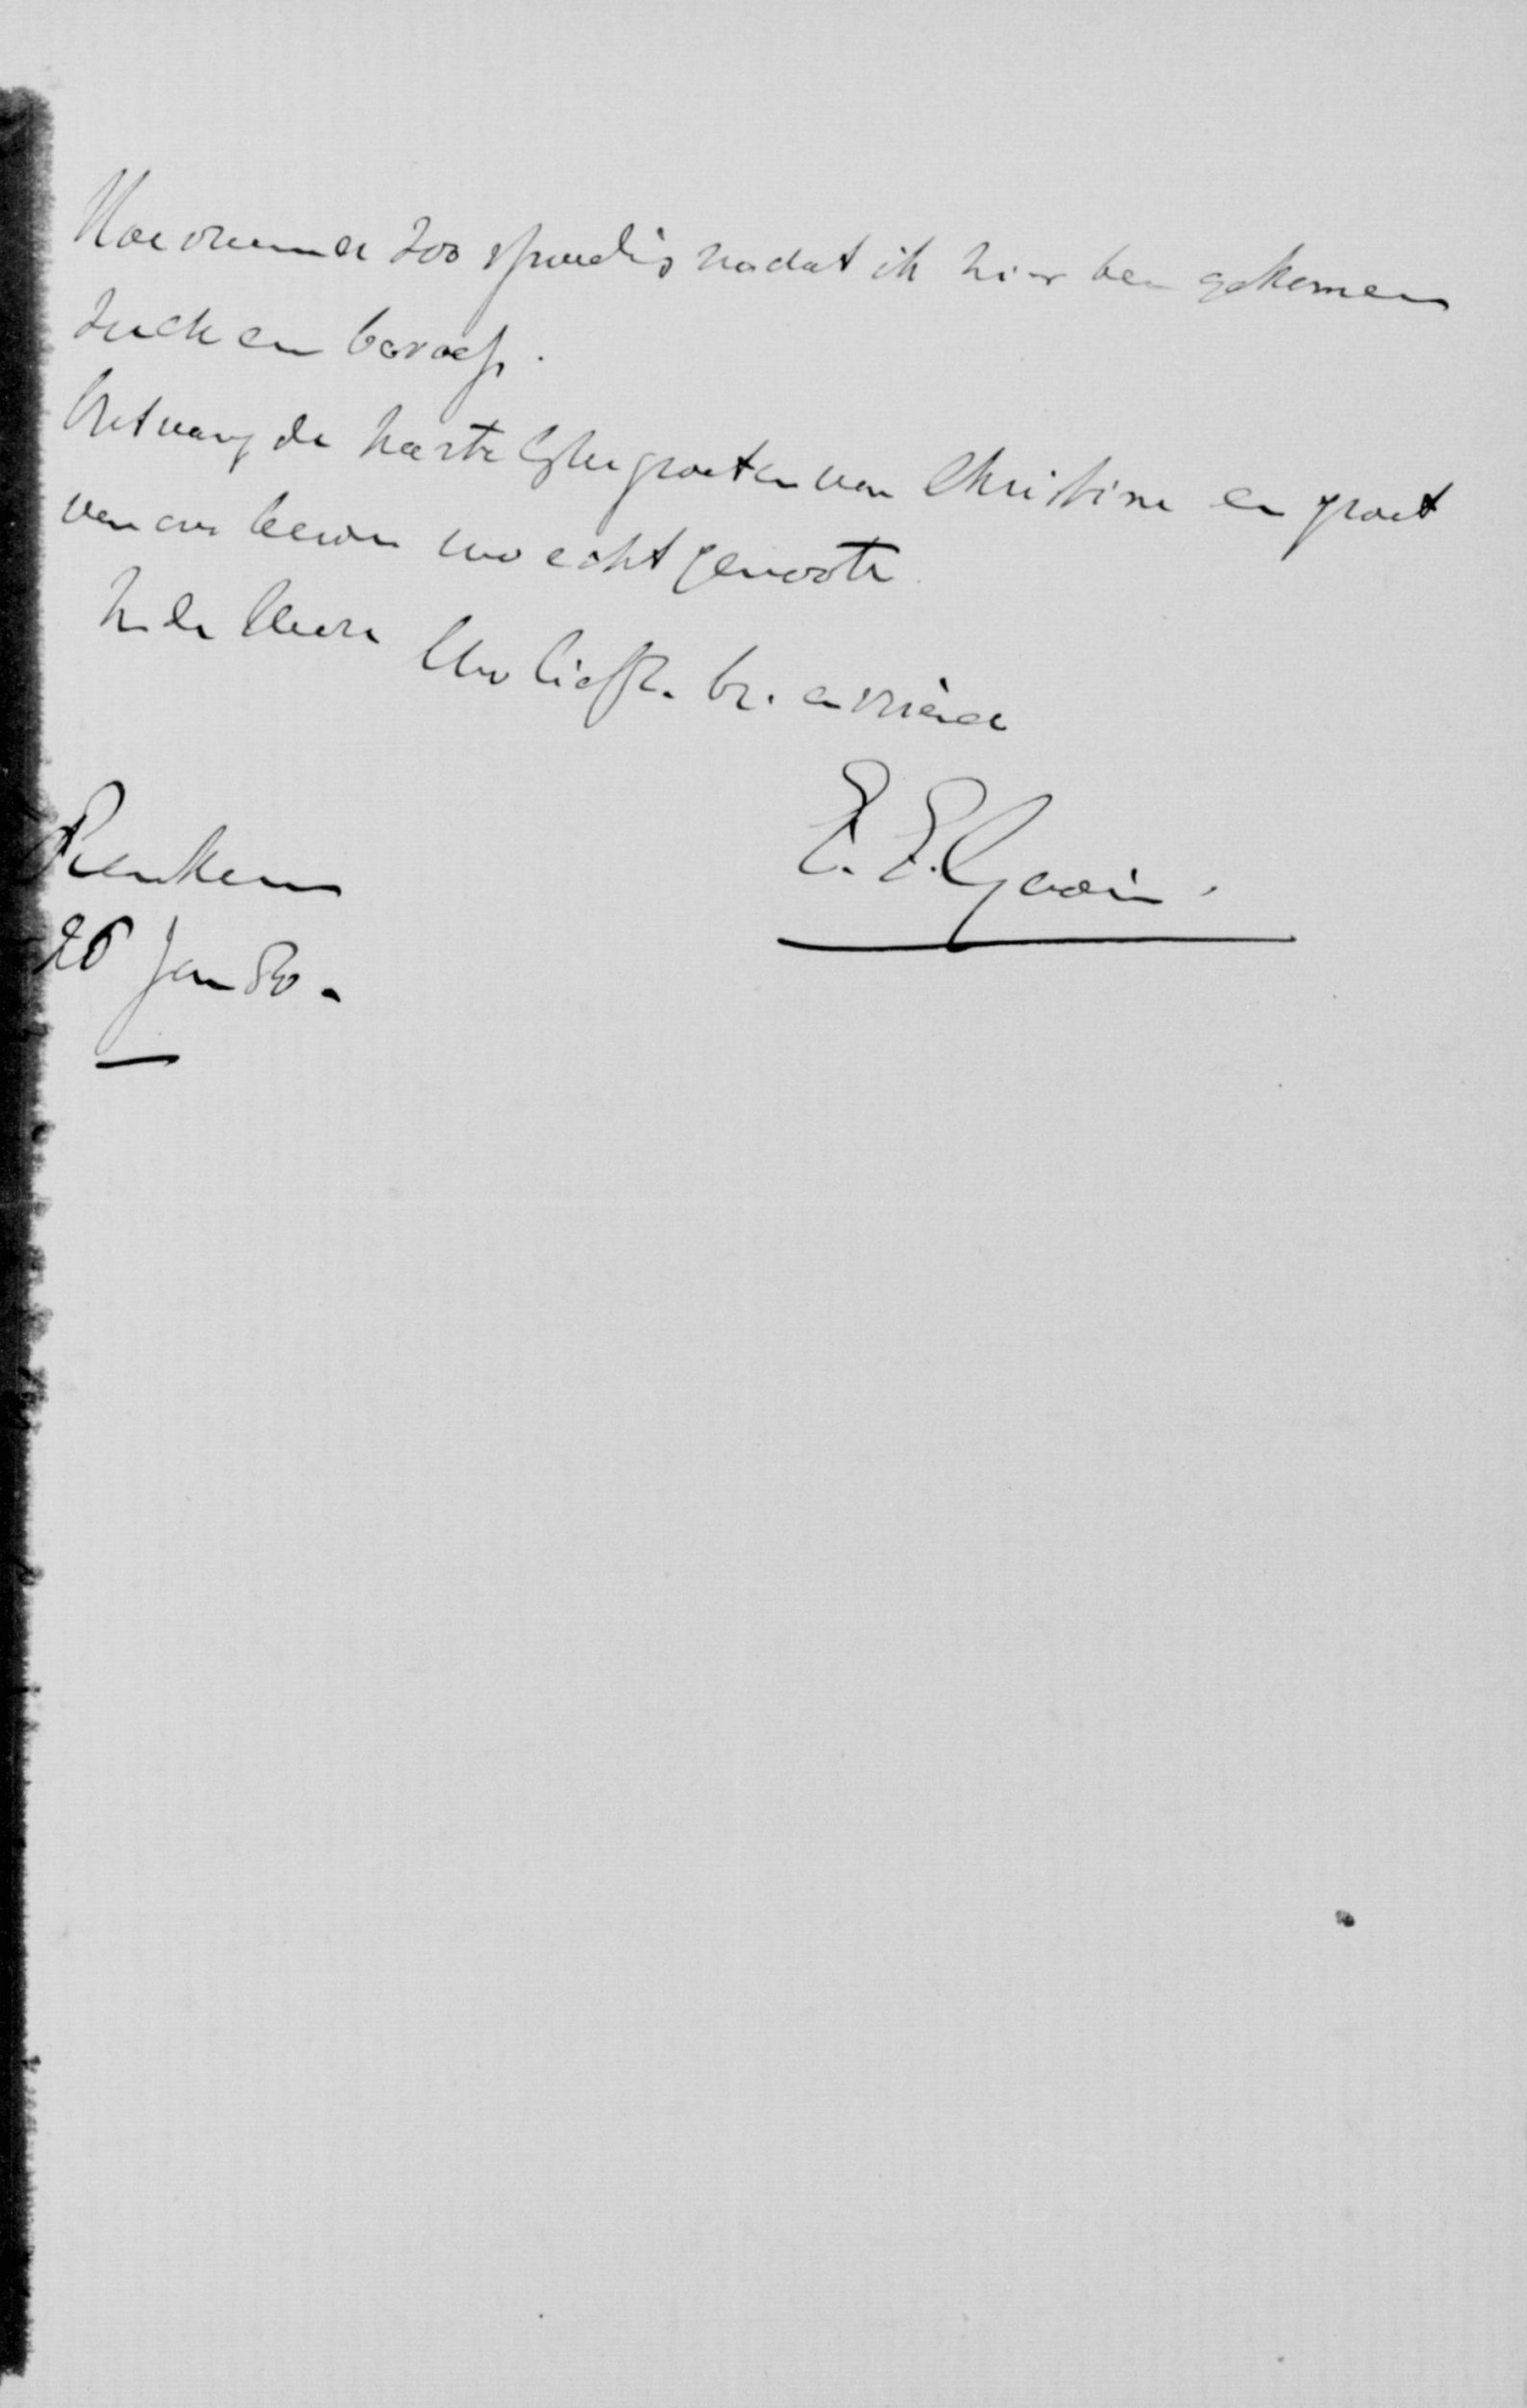 Hoe vreemd zoo spoedig nadat ik hier ben gekomen
zulk een beroep.
Ontvang de hartelijke groeten van Christine en groet
van ons beiden uw echtgenoote.
In den Heere Uw liefh. br. en vriend
E. E. Gewin.
Renkum
26 Jan 80.